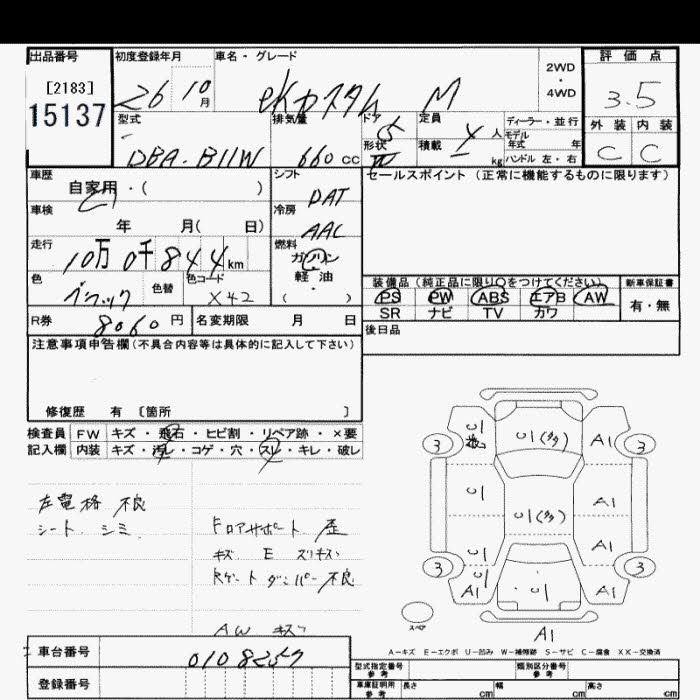 出品番号 初度登録年月 車名・グレード 評価点
[2183] 26 10月 eKカスタム M 2WD・4WD 3.5
15137
型式 排気量 ドア 5 定員 4人 ディーラー・並行 外装 内装
DBA-B11W 660cc 形状 積載 kg モデル年式 年 ハンドル 左・右 C C
車歴 自家用・( ) シフト DAT セールスポイント (正常に機能するものに限ります)
車検 年 月( 日) 冷房 AAC
走行 10万0千844km 燃料 ガソリン
軽油
( )
色 ブラック 色替 色コード X42 装備品 (純正品に限り○をつけてください) 新車保証書
PS PW ABS エアB AW 有・無
SR ナビ TV カワ
R券 8060円 名変期限 月 日 後日品
注意事項申告欄(不具合内容等は具体的に記入して下さい)
修復歴 有 〔箇所 〕
検査員 FW キズ・飛石・ヒビ割・リペア跡・×要
記入欄 内装 キズ・汚レ・コゲ・穴・スレ・キレ・破レ
左電格 不良
シート シミ
Fロアサポート 歪
キズ E スリキズ
Rゲートダンパー不良
AW キズ
U1 U1(多) A1
3 3
U1 A1
U1(多)
U1 A1
3 U1 3
A1 U1 A1
スペア
A1
A-キズ E-エクボ U-凹み W-補修跡 S-サビ C-腐食 XX-交換済
車台番号 0108257
登録番号
型式指定番号 参考 類別区分番号 参考
車庫証明用 参考 長さ cm 幅 cm 高さ cm